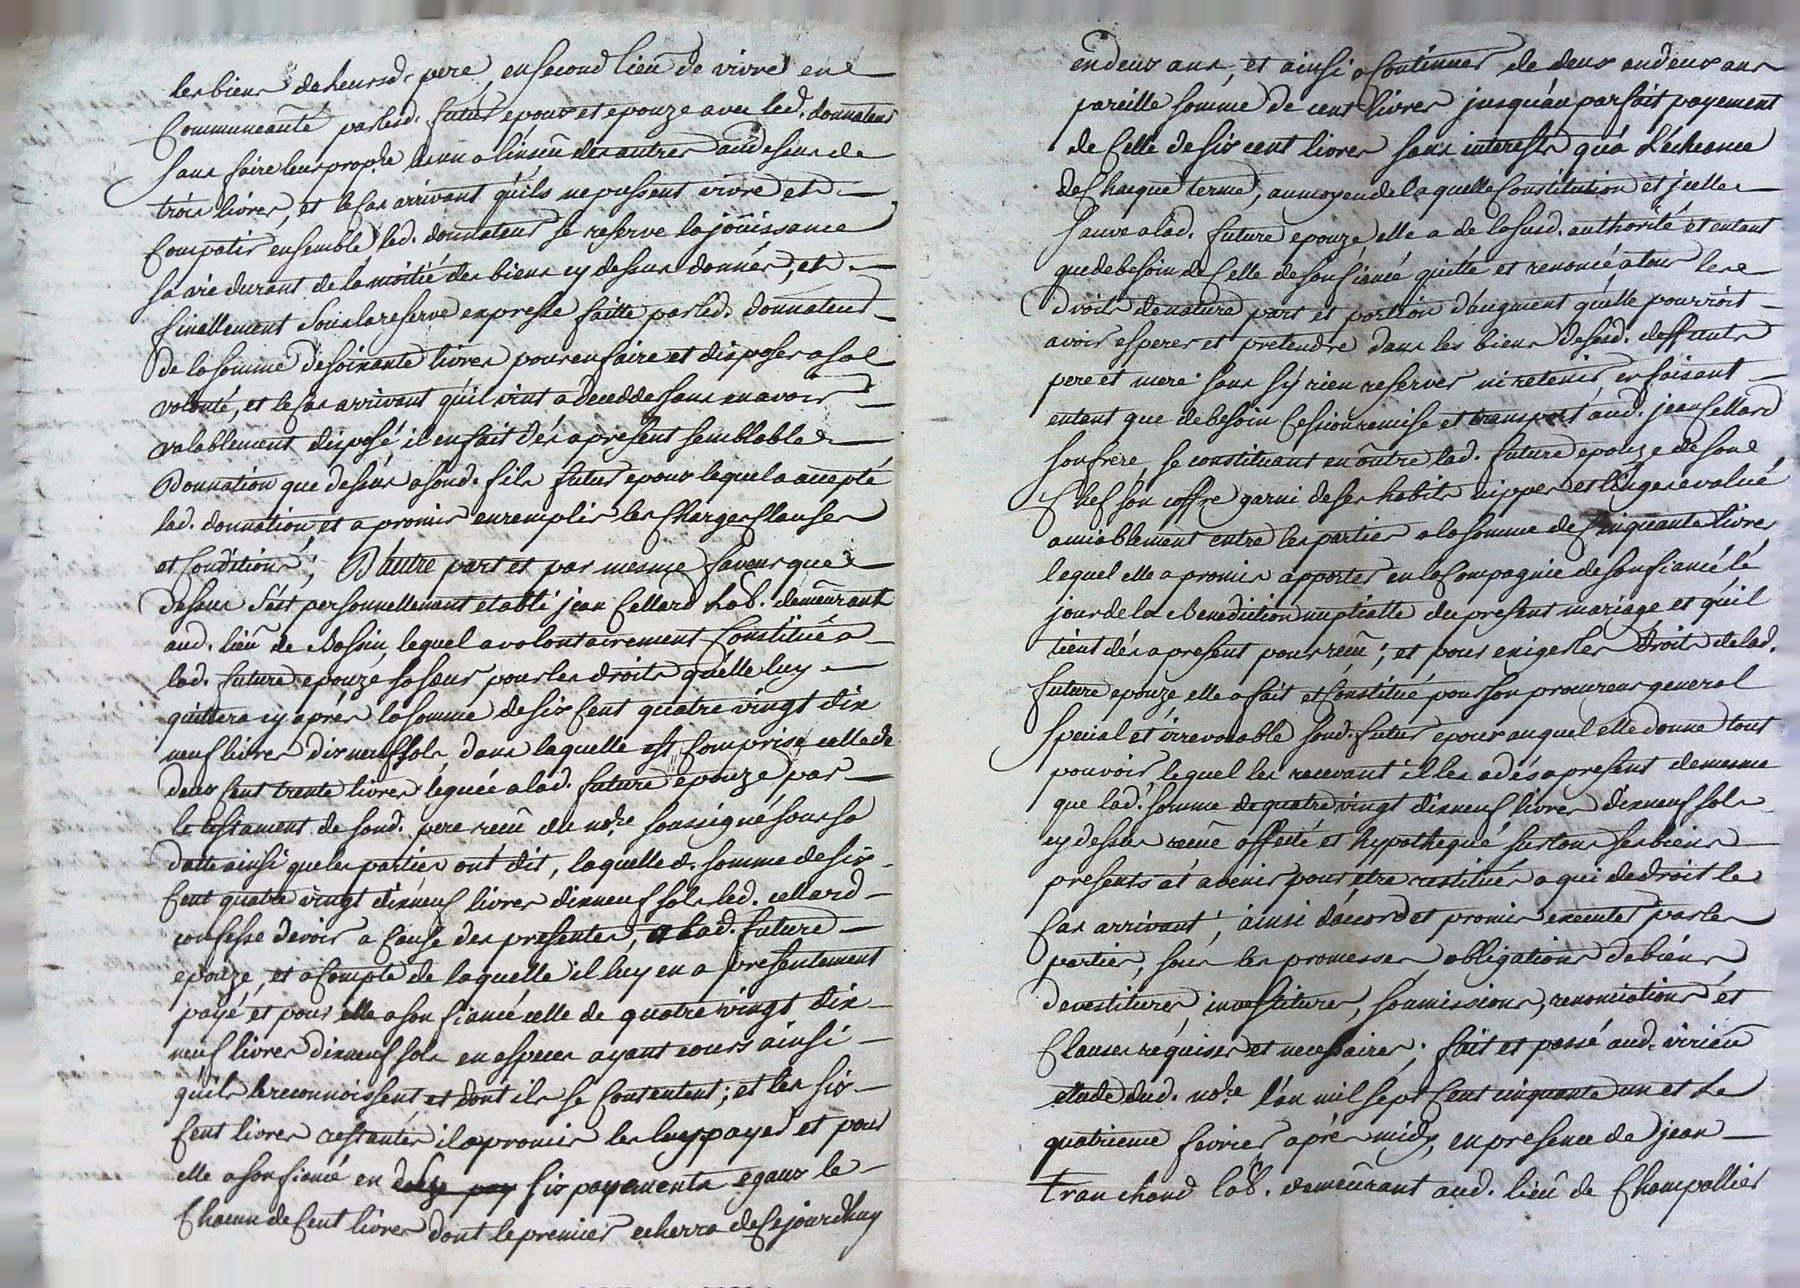 les biens de leursd. pere, en second lieu de vivre en
Communeauté par lesd. futur epoux et epouze avec led. donnateur
sans faire leur proph.e l'un a l'inseu des autres audessus de
trois livres, et le cas arrivant qu'ils ne pussent vivre et
compatir ensemble led. donnateur se reserve la joüissance
sa vie durant de la moitié des biens cy dessus donnés, et
finallement sous la reserve expresse faitte par led. donnateur
de la somme de soixante livres pour en faire et disposer a sa
volonté, et le cas arrivant qu'il vint a decedder sans en avoir
valablement disposé il en fait dés apresent semblable
Donnation que dessus a sond. fils futur epoux lequel a accepté
lad. donnation, et a promis en remplir les Charges Clauses
et Conditions; D'autre part et par mesme faveur que
dessus s'est personnellement etabli jean Cellard lab. demeurant
aud. lieu de Bassin, lequel a volontairement Constitué a
lad. future epouze sa sœur pour les droits qu'elle luy
quittera cy aprés la somme de six Cent quatre vingt dix
neuf livres dix neuf sols, dans laquelle est Comprise celle de
deux Cent trente livres leguée a lad. future epouze par
le testament de sond. pere reçu du no.re soussigné sous sa
datte ainsi que les parties ont dit, laquelle d. somme de six
Cent quatre vingt dixneuf livres dixneuf sols led. cellard
confesse devoir a Cause des presentes, a lad. future
epouze, et a Compte de laquelle il luy en a presentement
payé et pour elle a son fiancé celle de quatre vingt dix
neuf livres dixneuf sols en especes ayant cours ainsi
qu'ils le reconnoissent et dont ils se Contentent; et les six
Cent livres restantes il a promis les luy payer et pour
elle a son fiancé en six payements egaux le
Chacun de Cent livres dont le premier echerra de Cejourdhuy
en deux ans, et ainsi a Continuer de deux en deux ans
pareille somme de cent livres jusqu'au parfait payement
de Celle de six cent livres sans interests qu'a L'echeance
de Chaque terme, au moyen de laquelle Constitution et jcelle
sauve a lad. future epouze, elle a de la susd. authorité et entant
que de besoin de Celle de son fiancé quitté et renoncé a tous les
Droits de nature part et portion d'augment qu'elle pourroit
avoir esperer et pretendre dans les biens desesd. deffunts
pere et mere sans s'y rien reserver ni retenir, en faisant
entant que de besoin Cession remise et transport aud. jean Cellard
son frere, se constituant en outre lad. future epouze de son
Chef son coffre garni de ses habits nippes et linges evalué
amiablement entre les parties a la somme de Cinquante livres
lequel elle a promis apporter en la Compagnie de son fiancé le
jour de la Benediction nuptialle du present mariage et qu'il
tient dés apresent pour reçeu; et pour exiger les Droits de lad.
future epouze, elle a fait et Constitué pour son procureur general
special et irrevocable sond. futur epoux auquel elle donne tout
pouvoir, lequel les recevant il les a dés apresent de mesme
que lad. somme de quatre vingt dixneuf livres dixneuf sols
cy dessus receue affecté et hypothequé sur tous ses biens
presents et avenir pour être restitués a qui de droit le
Cas arrivant; ainsi d'accord et promis executer par les
parties, sous les promesses, obligations de biens
devestitures investitures, soumissions, renonciations et
Clauses requises et necessaires; fait et passé aud. virieu
etude dud. no.re l'an mil sept Cent cinquante un et Le
quatrieme fevrier aprés midy, en presence de jean
tranchand lab. demeurant aud. lieu de Champollier